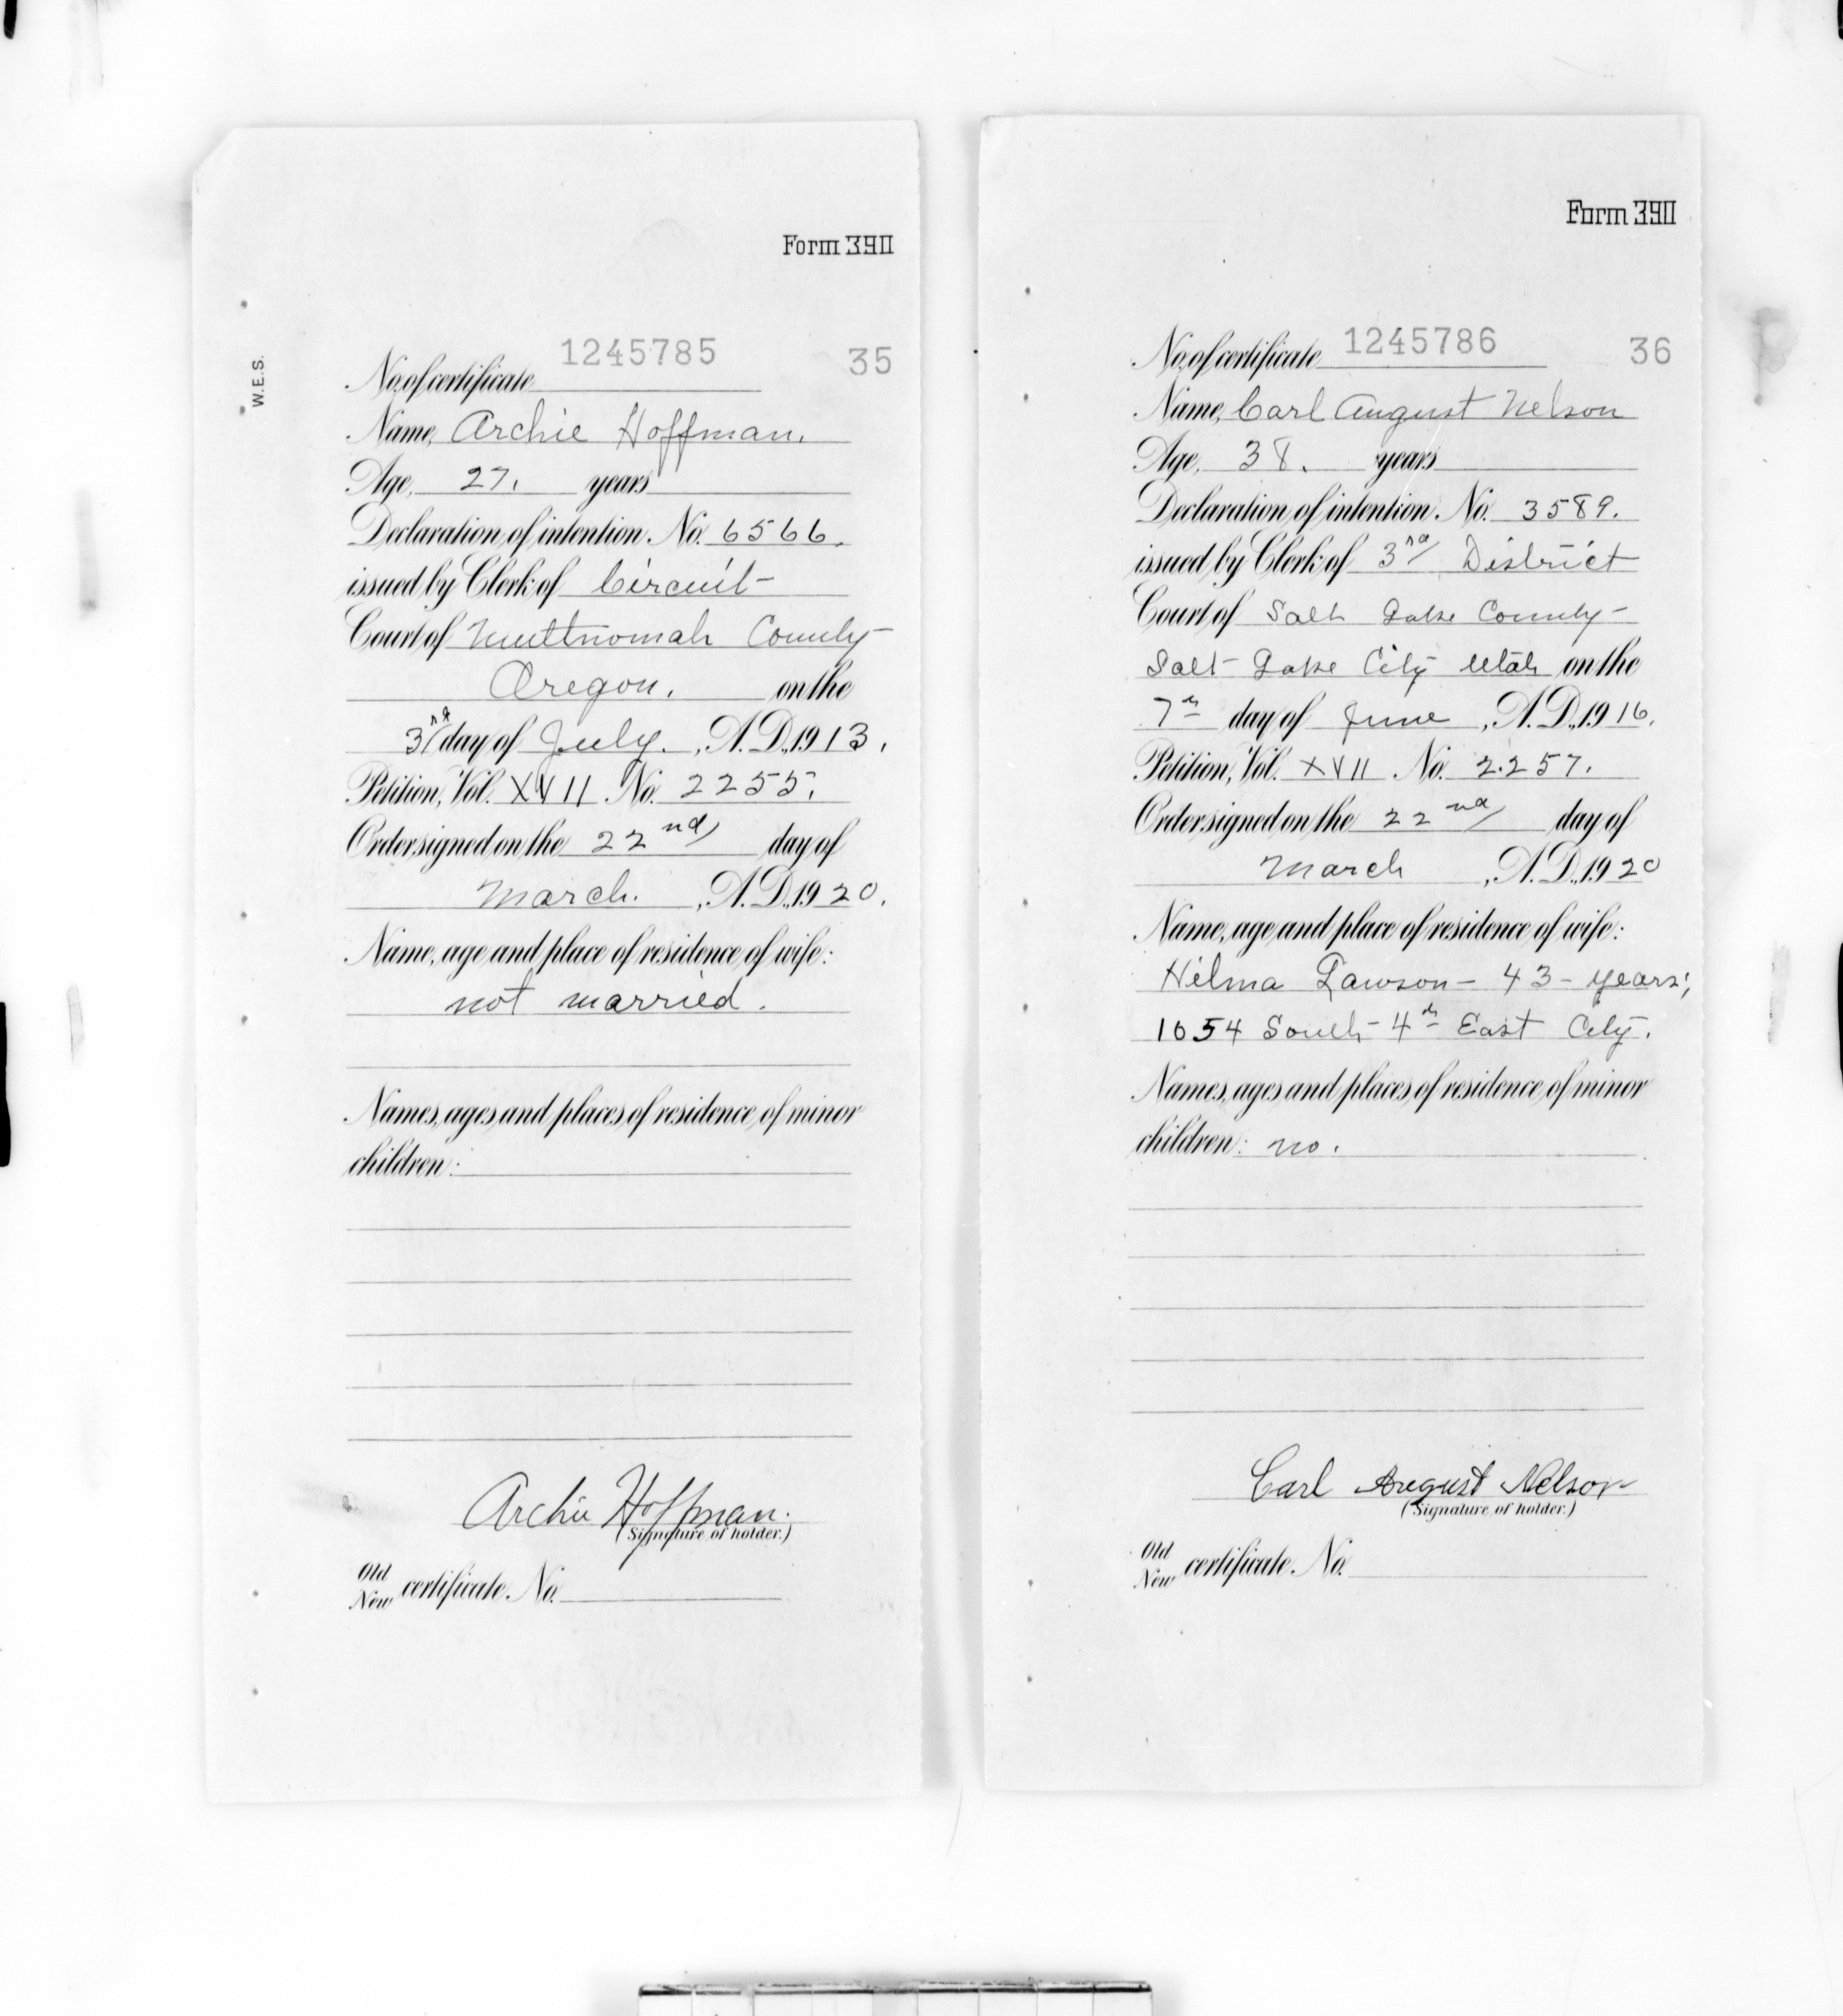 Form 390
W.E.S.
1245785 35
No. of certificate
Name, Archie Hoffman.
Age, 27. years
Declaration of intention No. 6566.
issued by Clerk of Circuit
Court of Multnomah County
Oregon. on the
3rd day of July., A.D., 1913.
Petition, Vol. XVII No. 2255.
Order signed on the 22nd day of
March., A.D., 1920.
Name, age and place of residence of wife:
not married.
Names, ages and places of residence of minor
children:
Archie Hoffman.
(Signature of holder.)
Old
New certificate No.
Form 390
1245786 36
No. of certificate
Name, Carl August Nelson
Age, 38. years
Declaration of intention No. 3589.
issued by Clerk of 3rd District
Court of Salt Lake County
Salt Lake City Utah on the
7th day of June, A.D., 1916.
Petition, Vol. XVII No. 2257.
Order signed on the 22nd day of
March, A.D., 1920
Name, age and place of residence of wife:
Hilma Lawson - 43 - years;
1654 South - 4th East City.
Names, ages and places of residence of minor
children: no.
Carl August Nelson
(Signature of holder.)
Old
New certificate No.